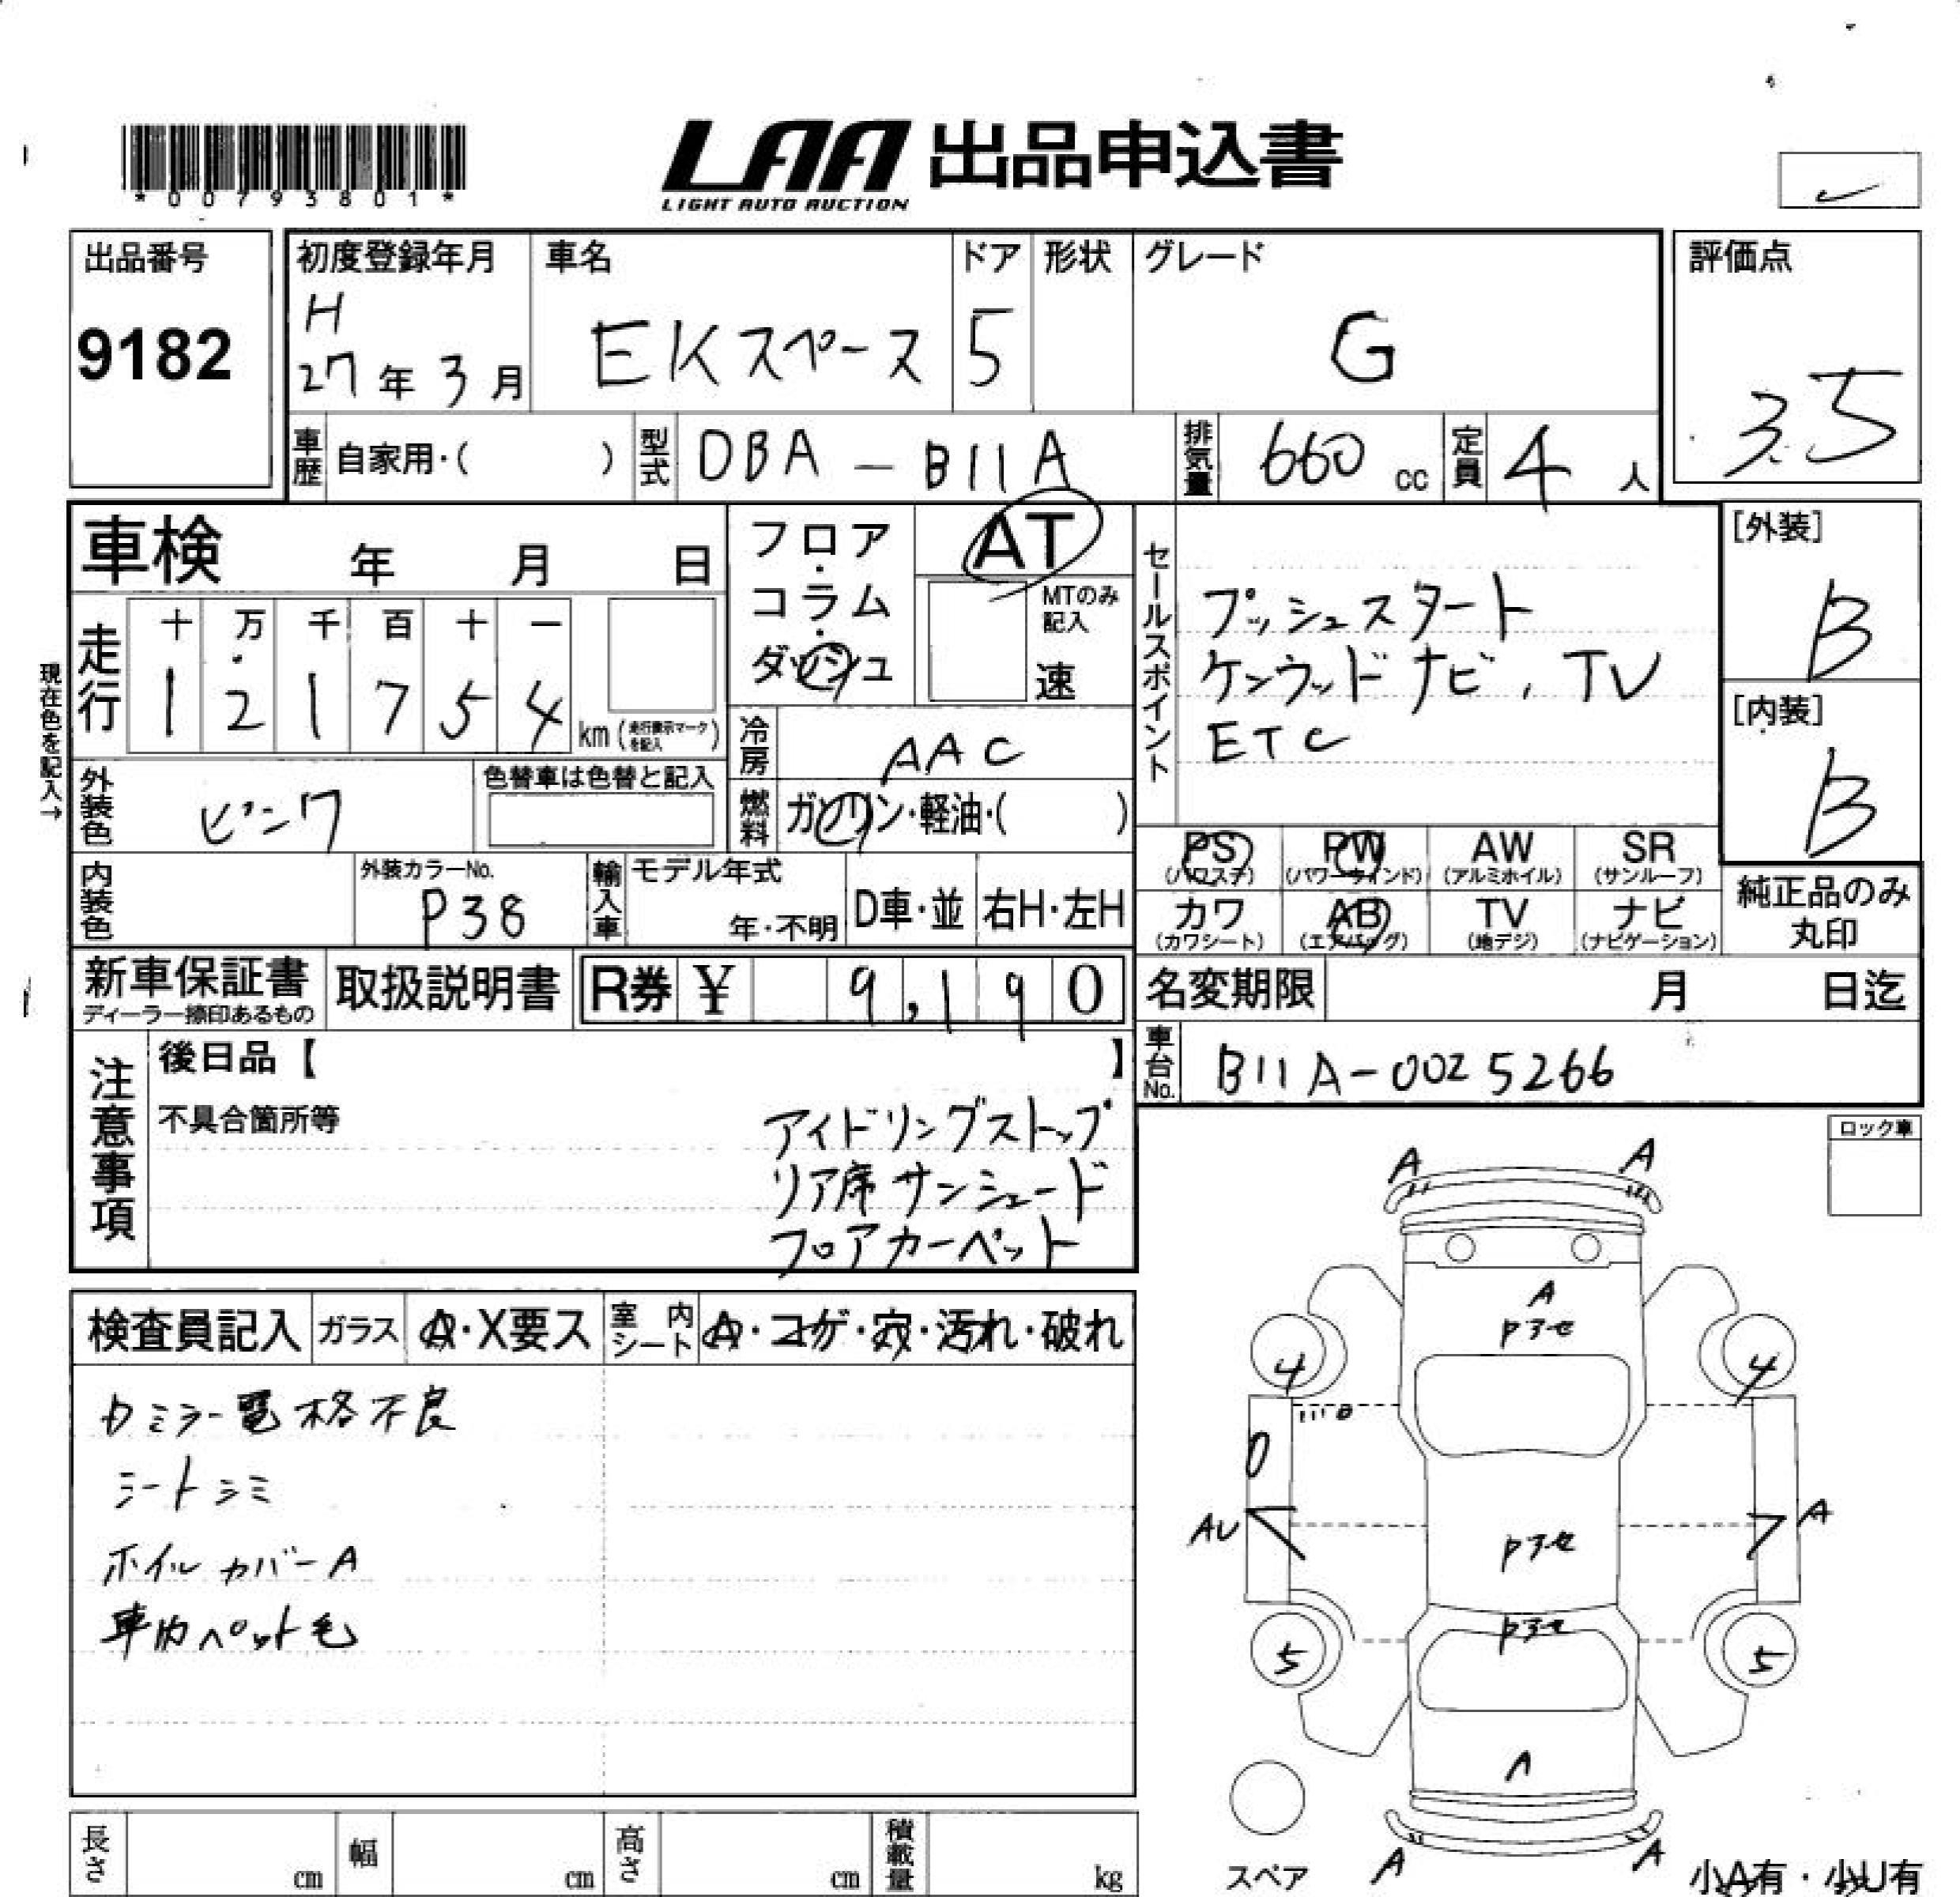 *00793801*
LAA 出品申込書
LIGHT AUTO AUCTION
出品番号
9182
初度登録年月
H
27年3月
車名
EKスペース
ドア
5
形状
グレード
G
評価点
3.5
車歴 自家用・( )
型式 DBA-B11A
排気量 660 cc
定員 4人
車検 年 月 日
フロア・コラム・ダッシュ
AT
MTのみ記入
速
現在色を記入→
走行
十 万 千 百 十 一
1 2 1 7 5 4
km(走行表示マークを記入)
冷房 AAC
外装色 ピンク
色替車は色替と記入
燃料 ガソリン・軽油・( )
内装色
外装カラーNo.
P38
輸入車 モデル年式
年・不明
D車・並
右H・左H
セールスポイント
プッシュスタート
ケンウッドナビ, TV
ETC
[外装]
B
[内装]
B
PS PW AW SR
(パワステ) (パワーウィンド) (アルミホイル) (サンルーフ)
カワ AB TV ナビ
(カワシート) (エアバッグ) (地デジ) (ナビゲーション)
純正品のみ
丸印
新車保証書
ディーラー捺印あるもの
取扱説明書
R券 ¥ 9,190
名変期限 月 日迄
車台No. B11A-0025266
注意事項
後日品【 】
不具合箇所等
アイドリングストップ
リア席サンシェード
フロアカーペット
ロック車
検査員記入
ガラス A・X要ス
室内シート A・コゲ・穴・汚れ・破れ
カミラー電格不良
シートシミ
ホイルカバーA
車内ペット毛
A A
A
Pアセ
4 4
AU A
Pアセ
Pアセ
5 5
A
A A
スペア
小A有・小U有
長さ cm
幅 cm
高さ cm
積載量 kg